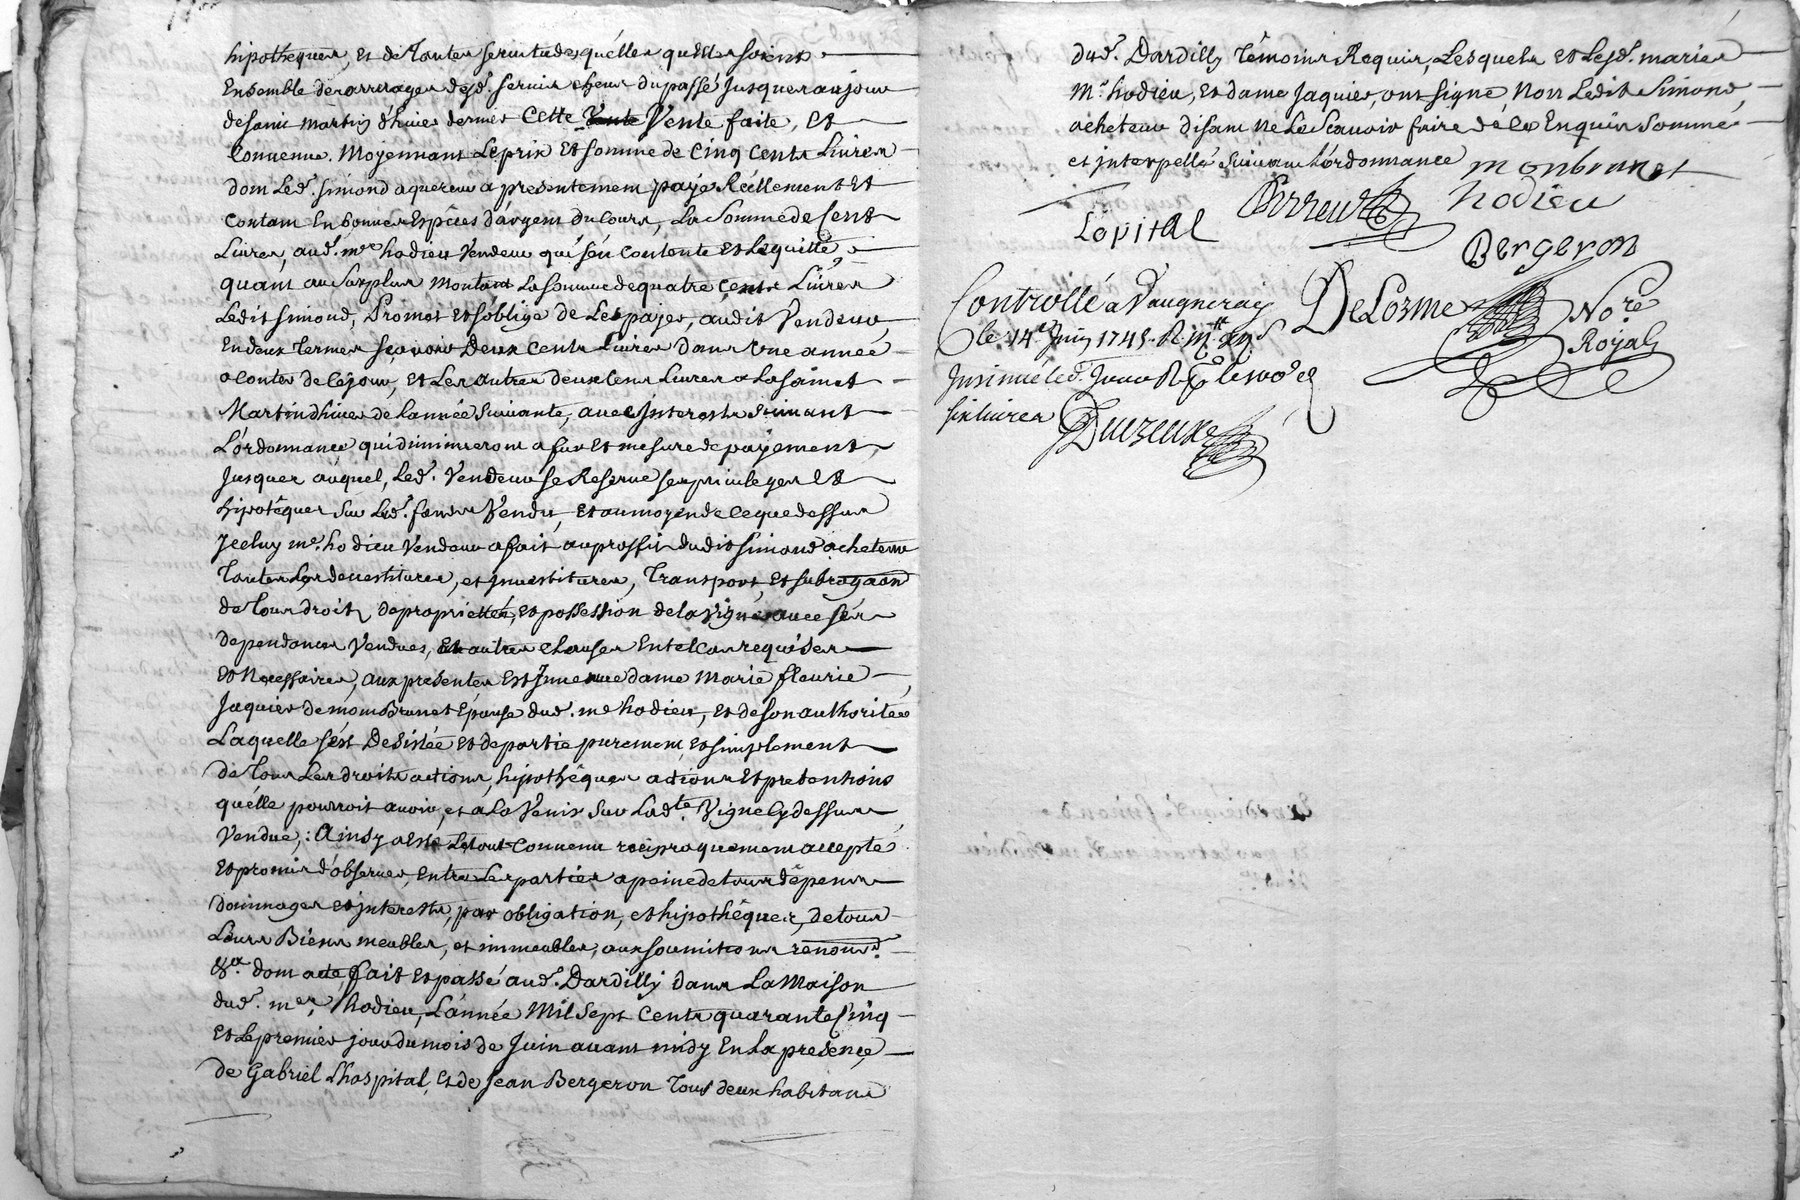 hipotheques, et de toutes servitudes quélles quelles soient
Ensemble des arrerages desd. servis echeus du passé Jusques au jour
de saint martin d'hiver dernier Cette Vente Vente faite, et
Convenue. Moyennant Le prix et somme de Cinq Cents Livres
dont Led. Simond aquereur a presentement payé Réellement et
Contant En bonnes Espêces d'argent du Cours, La Somme de Cent
Livres, aud. me hodieu Vendeur qui s'en Contente et Lequitte,
quant au Surplus montant La somme de quatre Cents Livres
Ledit Simond, Promet et s'oblige de Les payer, audit Vendeur,
En deux termes sçavoir Deux Cents Livres dans une année
a Conter de Cejour, et Les autres deux Cens Livres a La Saint
Martin dhiver de L'année Suivante, avec Interests suivant
L'ordonnance qui diminueront a fur et mesure de payement,
Jusques auquel, Led. Vendeur se Reserve ses privileges et
hipotêques sur Led. fonds Vendu, et au moyen de Ceque dessus
Jceluy me. hodieu Vendeur a fait au proffit dudit Simond acheteur
Toutes Les devestitures, et Jnvestitures, Transport, et subrogaon
de tous droits de proprietté, et possession de la Vigne avec ses
dependances Vendues, Et autres Clauses En tel Cas requises
et Necessaires, aux presentes Est Jntervenue dame Marie fleurie
Jaquier de mombrunet Epouse dud. me hodieu, et de son authoritée
Laquelle s'est Desistée et departie purement et simplement
de tous Les droits actions, hipothêques actions et pretentions
qu'elle pourroit avoir, et a La Venir Sur Lad.te Vigne Cy dessus
Vendue; Ainsy a Esté Le tout Convenu reciproquement accepté
et promis d'observer, Entre Les parties a peine de tous dêpens
dommages et interests, par obligation, et hipothêque, de tous
Leurs Biens meubles, et immeubles, aux soumitions renond.
&a. dont acte, fait et passé aud. Dardilly dans La Maison
dud. me, hodieu, L'année Mil Sept Cents quarante Cinq
et Le premier jour du mois de Juin avant midy En La presence
de Gabriel Lhospital, et de Jean Bergeron Tous deux habitans
dud. Dardilly têmoins Requis, Lesquels et Lesd. mariés
Mr. hodieu, et dame Jaquier, ont signé, Non Ledit Simond,
acheteur disant ne Le Scavoir faire de ce Enquis Sommé
et interpellé suivant L'ordonnance monbrunet
Perreur hodieu
Lopital
Bergeron
Controllé a Vaugneray DeLorme No.re
le 14e Juin 1745. Royal
Jnsinué led. Jour
six livres